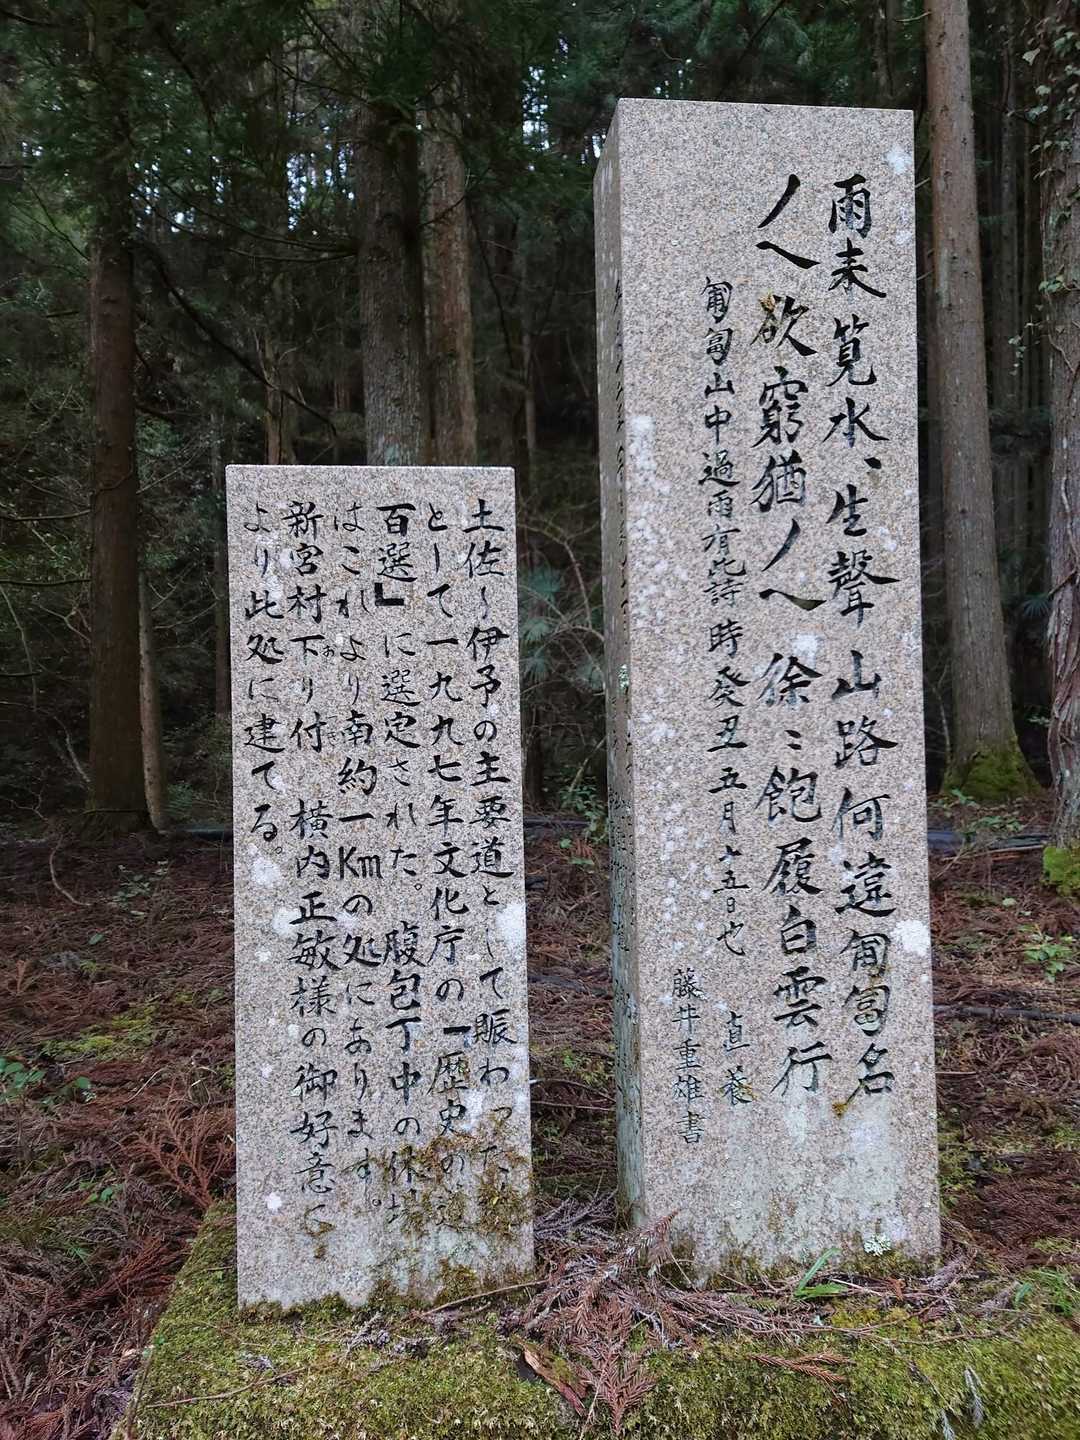 雨来筧水〻生聲山路何違匍匐名
ノ乀欲窮猶ノ乀徐〻飽履白雲行
匍匐山中過雨有此詩 時癸丑五月十五日也
直養
藤井重雄書
土佐〜伊予の主要道として賑わった
として一九九七年文化庁の「歴史の道
百選」に選定された。腹包丁中の休場
はこれより南約一Kmの処にあります。
新宮村下り付 横内正敏様の御好意に
より此処に建てる。